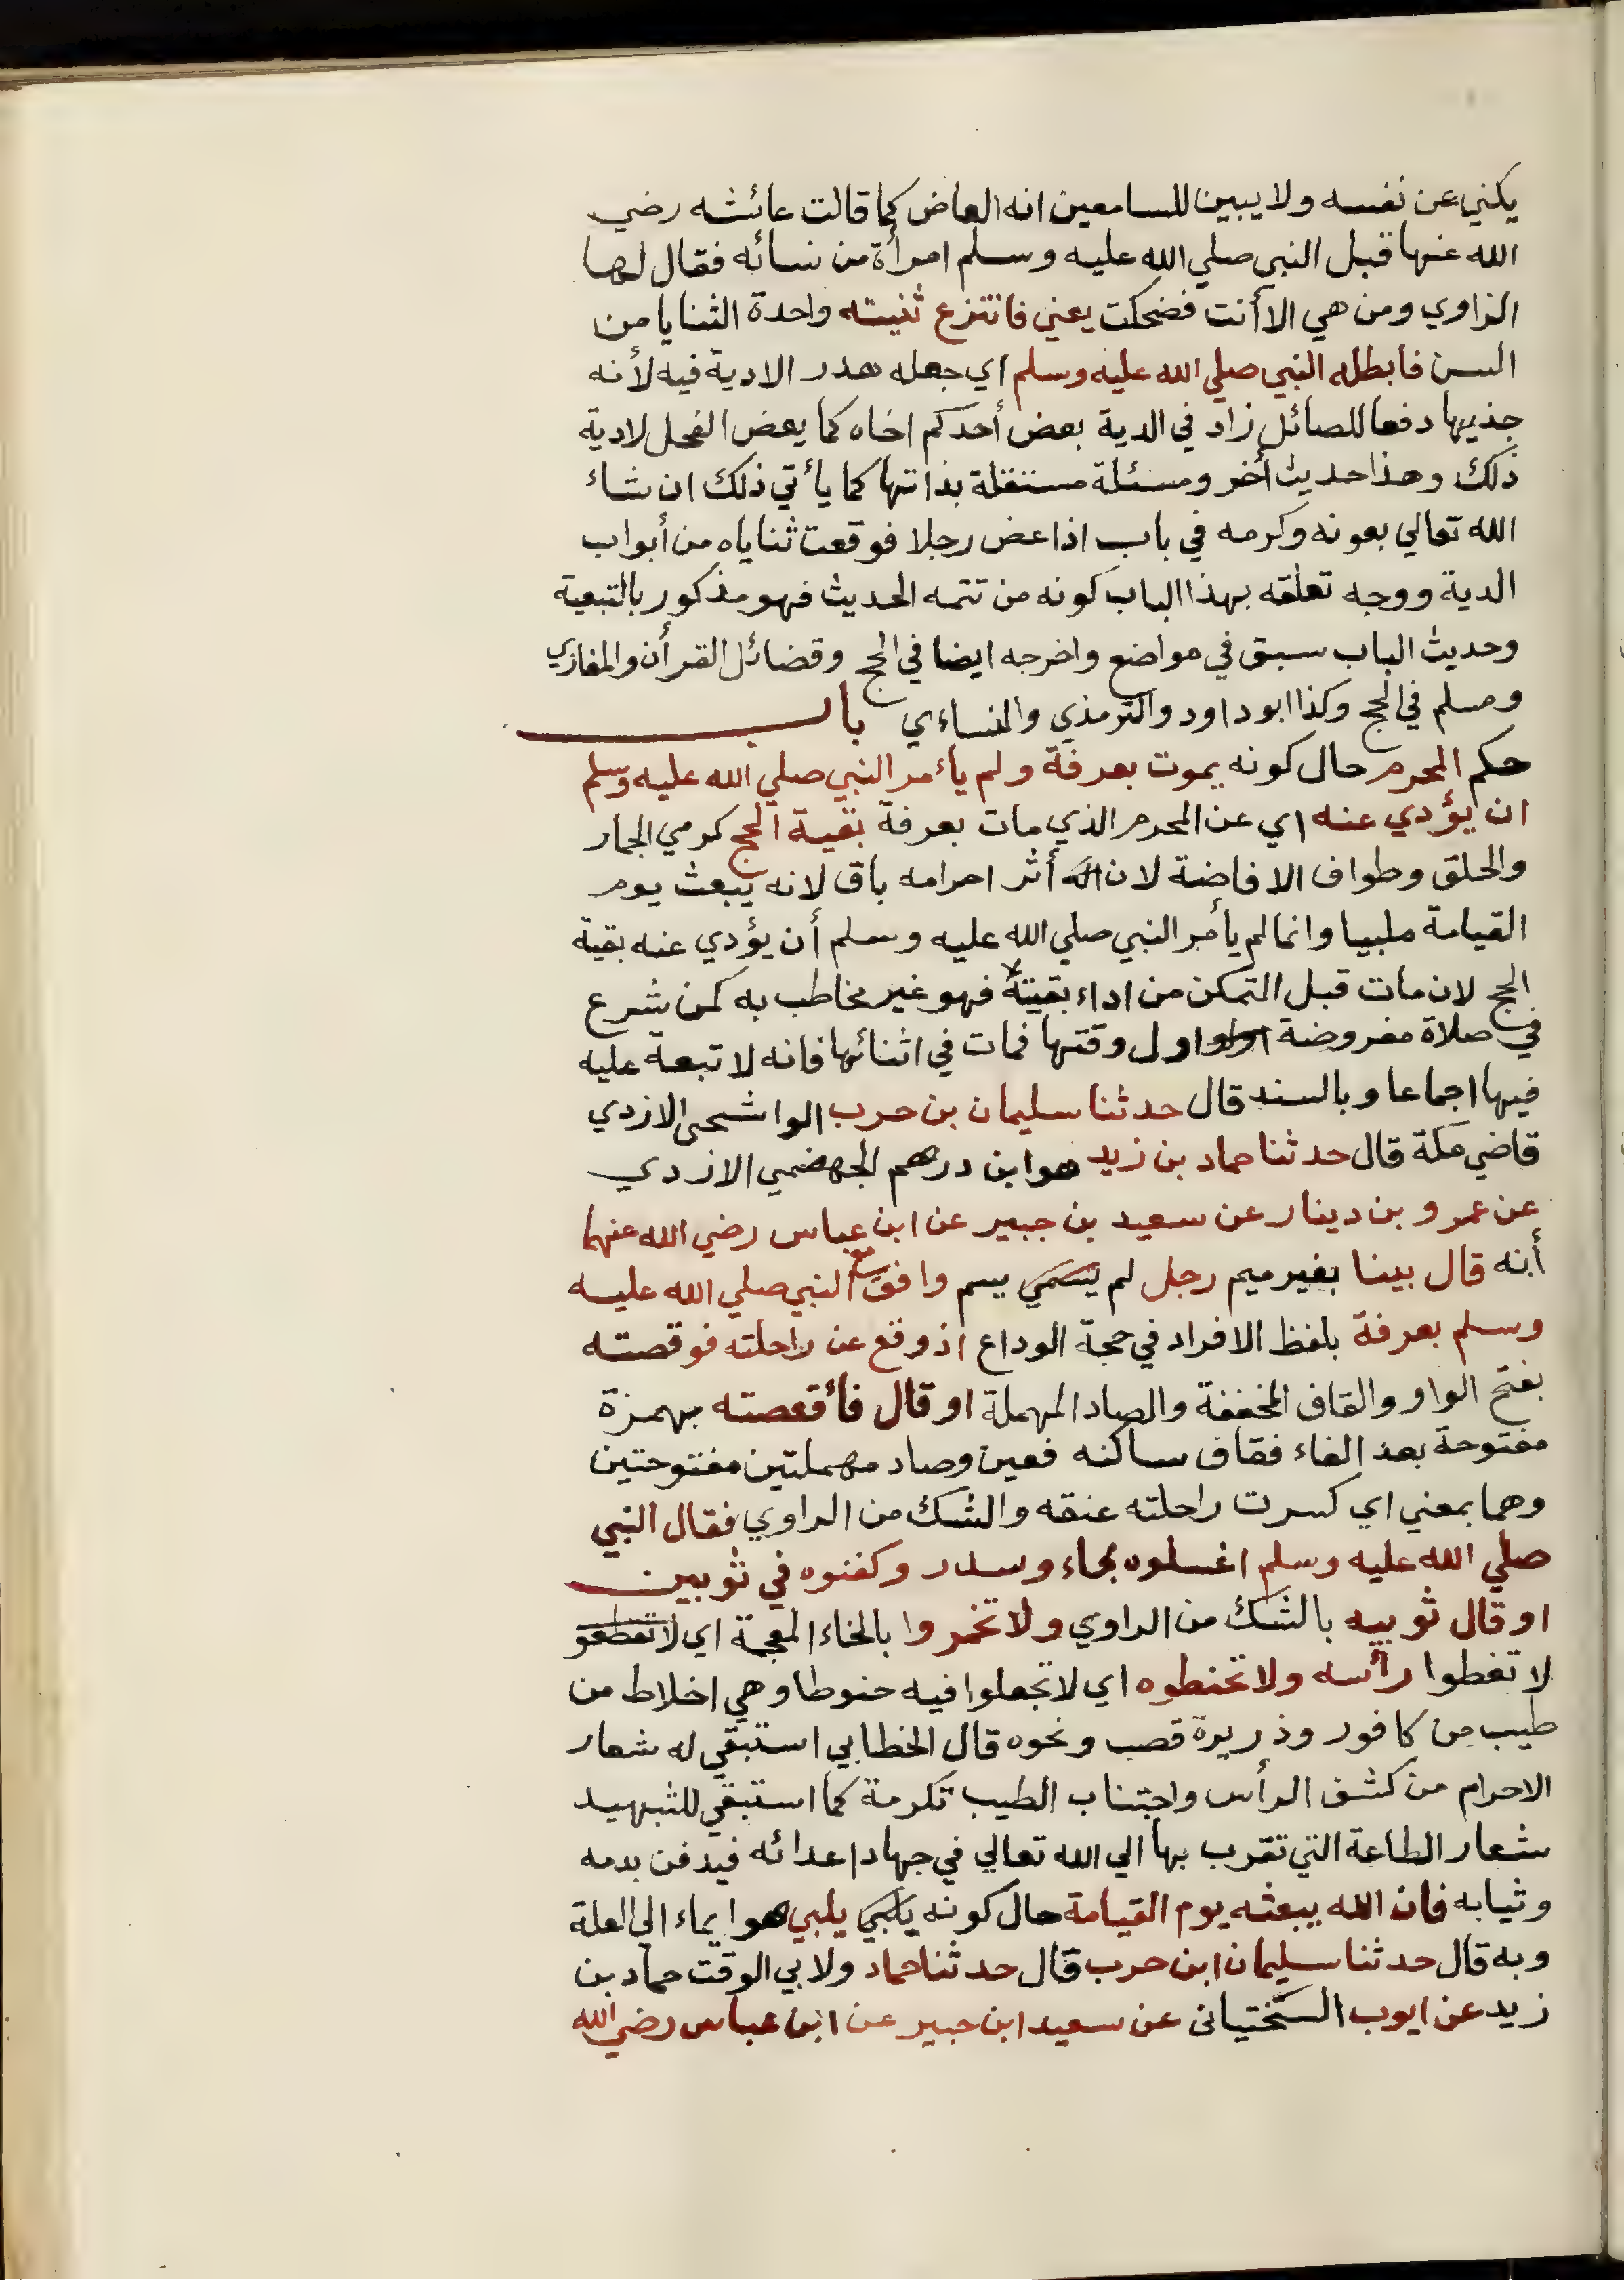 يكني عن نفسه ولا يبين للسامعين انه العاض كما قالت عائشه رضي
الله عنها قبل النبي صلي الله عليه وسلم امرأة من نسائه فقال لها
الراوي ومن هي الا أنت فضحكت يعني فانتزع ثنيته واحدة الثنايا من
السن فابطله النبي صلي الله عليه وسلم اي جعله هدر الادية فيه لأنه
جذبها دفعا للصائل زاد في الدية بعض أحدكم اخاه كما يعض الفحل لادية
ذلك وهذا حديث أخر ومسئلة مستقلة بذاتها كما يأتي ذلك ان شاء
الله تعالي بعونه وكرمه في باب اذا عض رجلا فوقعت ثناياه من أبواب
الدية ووجه تعلقه بهذا الباب كونه من تتمه الحديث فهو مذكور بالتبعية
وحديث الباب سبق في مواضع واخرجه ايضا في الحج وفضائل القرأن والمغازي
ومسلم في الحج وكذا ابو داود والترمذي والنساءي باب
حكم المحرم حال كونه يموت بعرفة ولم يأمر النبي صلي الله عليه وسلم
ان يؤدي عنه اي عن المحرم الذي مات بعرفة بقية الحج كرمي الجمار
والحلق وطواف الافاضة لان أثر احرامه باق لانه يبعث يوم
القيامة ملبيا وانما لم يأمر النبي صلي الله عليه وسلم أن يؤدي عنه بقية
الحج لان مات قبل التمكن من اداء بقيته فهو غير مخاطب به كمن شرع
في صلاة مفروضة اول وقتها فمات في اثنائها فانه لا تبعة عليه
فيها اجماعا وبالسند قال حدثنا سليمان بن حرب الواشحى الازدي
قاضي مكة قال حدثنا حماد بن زيد هو ابن درهم الجهضمي الازدي
عن عمرو بن دينار عن سعيد بن جبير عن ابن عباس رضي الله عنهما
أنه قال بينا بغير ميم رجل لم يسم وافق مع النبي صلي الله عليه
وسلم بعرفة بلفظ الافراد في حجة الوداع اذ وقع عن راحلته فوقصته
بفتح الواو والقاف المخففة والصاد المهملة او قال فأقعصته بهمزة
مفتوحة بعد الفاء فقاف ساكنه فعين وصاد مهملتين مفتوحتين
وهما بمعني اي كسرت راحلته عنقه والشك من الراوي فقال النبي
صلي الله عليه وسلم اغسلوه بماء وسدر وكفنوه في ثوبين
او قال ثوبيه بالشك من الراوي ولا تخمروا بالخاء المعجمة اي
لا تغطوا رأسه ولا تحنطوه اي لا تجعلوا فيه حنوطا وهي اخلاط من
طيب من كافور وذريرة قصب ونحوه قال الخطابي استبقي له شعار
الاحرام من كشف الرأس واجتناب الطيب تكرمة كما استبقي للشهيد
شعار الطاعة التي تقرب بها الي الله تعالي في جهاد اعدائه فيدفن بدمه
وثيابه فان الله يبعثه يوم القيامة حال كونه يلبي هو ايماء الي العلة
وبه قال حدثنا سليمان ابن حرب قال حدثنا حماد ولابي الوقت حماد بن
زيد عن ايوب السختيانى عن سعيد ابن جبير عن ابن عباس رضي الله